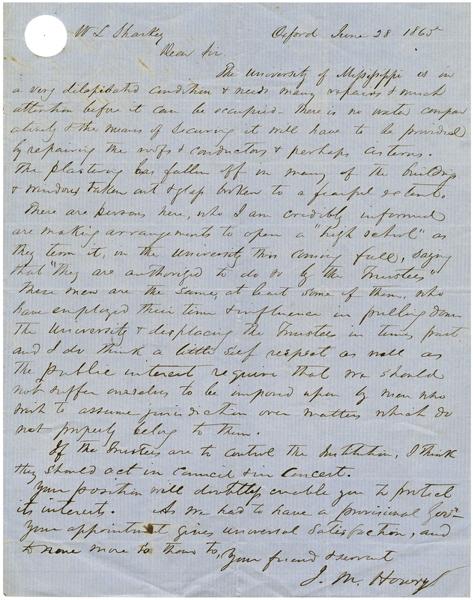 W L Sharkey Oxford June 28 1865
Dear Sir
The University of Mississippi is in
a very dilapidated condition & needs many repairs & much
attention before it can be occupied. There is no water compar
atively & the means of securing it will have to be provided
by repairing the roofs & conductors & perhaps cisterns.
The plastering has fallen off in many of the buildings
& windows taken out & glass broken to a fearful extent.
There are persons here, who I am credibly informed
are making arrangements to open a "high school" as
they term it, in the University this coming fall, saying
that "they are authorized to do so by the Trustees"
These men are the same, at least some of them, who
have employed their time & influence in pulling down
the University & displacing the Trustees in times past.
and I do think a little self respect as well as
the public interest require that we should
not suffer ourselves to be imposed upon by men who
wish to assume jurisdiction over matters which do
not properly belong to them.
If the Trustees are to control the Institution, I think
they should act in council & in concert.
Your position will doubtless enable you to protect
its interests. As we had to have a provisional Govr.
your appointment gives universal satisfaction, and
to none more so than to, Your friend & servant
J. M. Howry